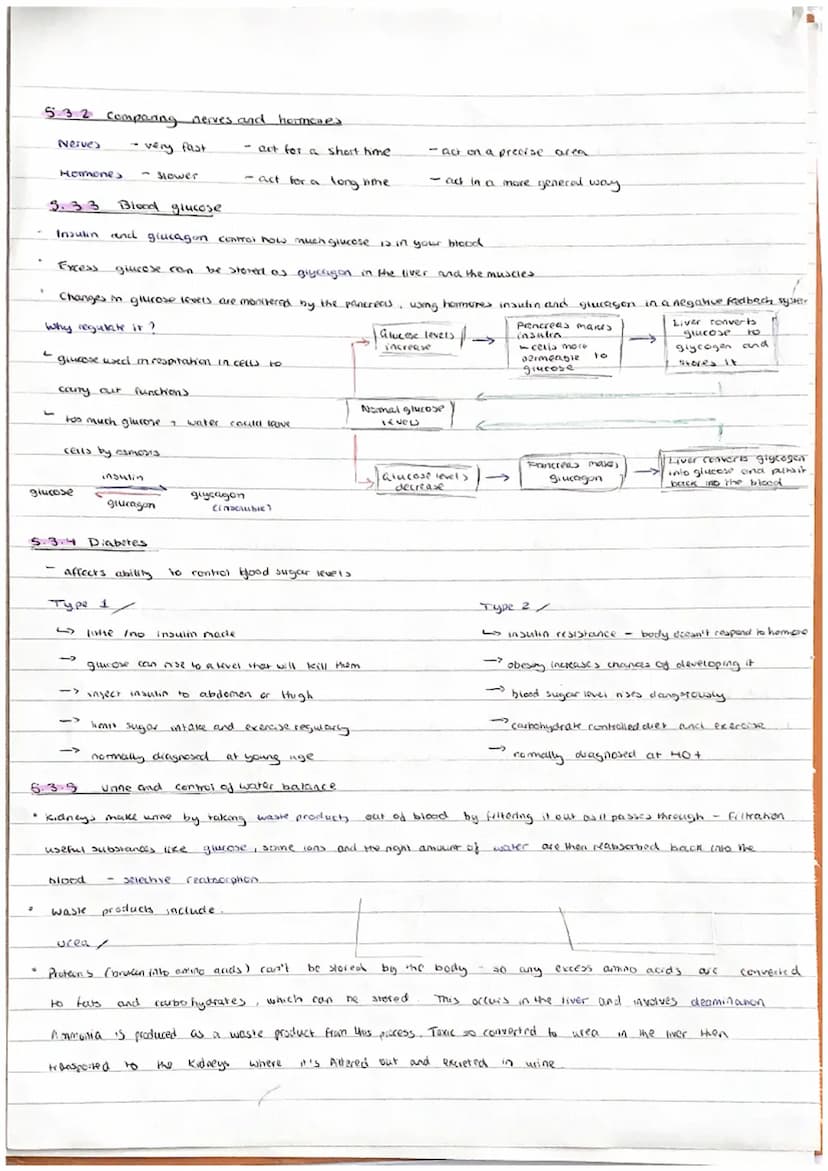 5.3.2 Comparing nerves and hormones
Nerves - very fast - act for a short time - act on a precise area
Hormones - slower - act for a long time - act in a more general way
5.3.3 Blood glucose
Insulin and glucagon control how much glucose is in your blood
Excess glucose can be stored as glycogen in the liver and the muscles
Changes in glucose levels are monitored by the pancreas, using hormones insulin and glucagon in a negative feedback system
Why regulate it?
glucose used in respiration in cells to
carry out functions
too much glucose, water could leave
cells by osmosis
insulin
glucose glycagon
glucagon (insoluble)
Glucose levels
increase
Pancreas makes
insulin
cells more
permeable to
glucose
Liver converts
glucose to
glycogen and
stores it
Normal glucose
levels
Glucose levels
decrease
Pancreas makes
glucagon
Liver converts glycogen
into glucose and puts it
back into the blood
5.3.4 Diabetes
- affects ability to control blood sugar levels
Type 1
↳ little/no insulin made
→ glucose can rise to a level that will kill them
→ inject insulin to abdomen or thigh
→ limit sugar intake and exercise regularly
→ normally diagnosed at young age
Type 2
↳ insulin resistance - body doesn't respond to hormone
→ obesity increases chances of developing it
→ blood sugar level rises dangerously
→ carbohydrate controlled diet and exercise
→ normally diagnosed at 40+
5.3.5 Urine and control of water balance
• Kidneys make urine by taking waste products out of blood by filtering it out as it passes through - filtration
useful substances like glucose, some ions and the right amount of water are then reabsorbed back into the
blood - selective reabsorption
• waste products include
urea
• Proteins (broken into amino acids) can't be stored by the body - so any excess amino acids are converted
to fats and carbohydrates, which can be stored. This occurs in the liver and involves deamination
Ammonia is produced as a waste product from this process. Toxic so converted to urea in the liver then
transported to the kidneys where it's filtered out and excreted in urine